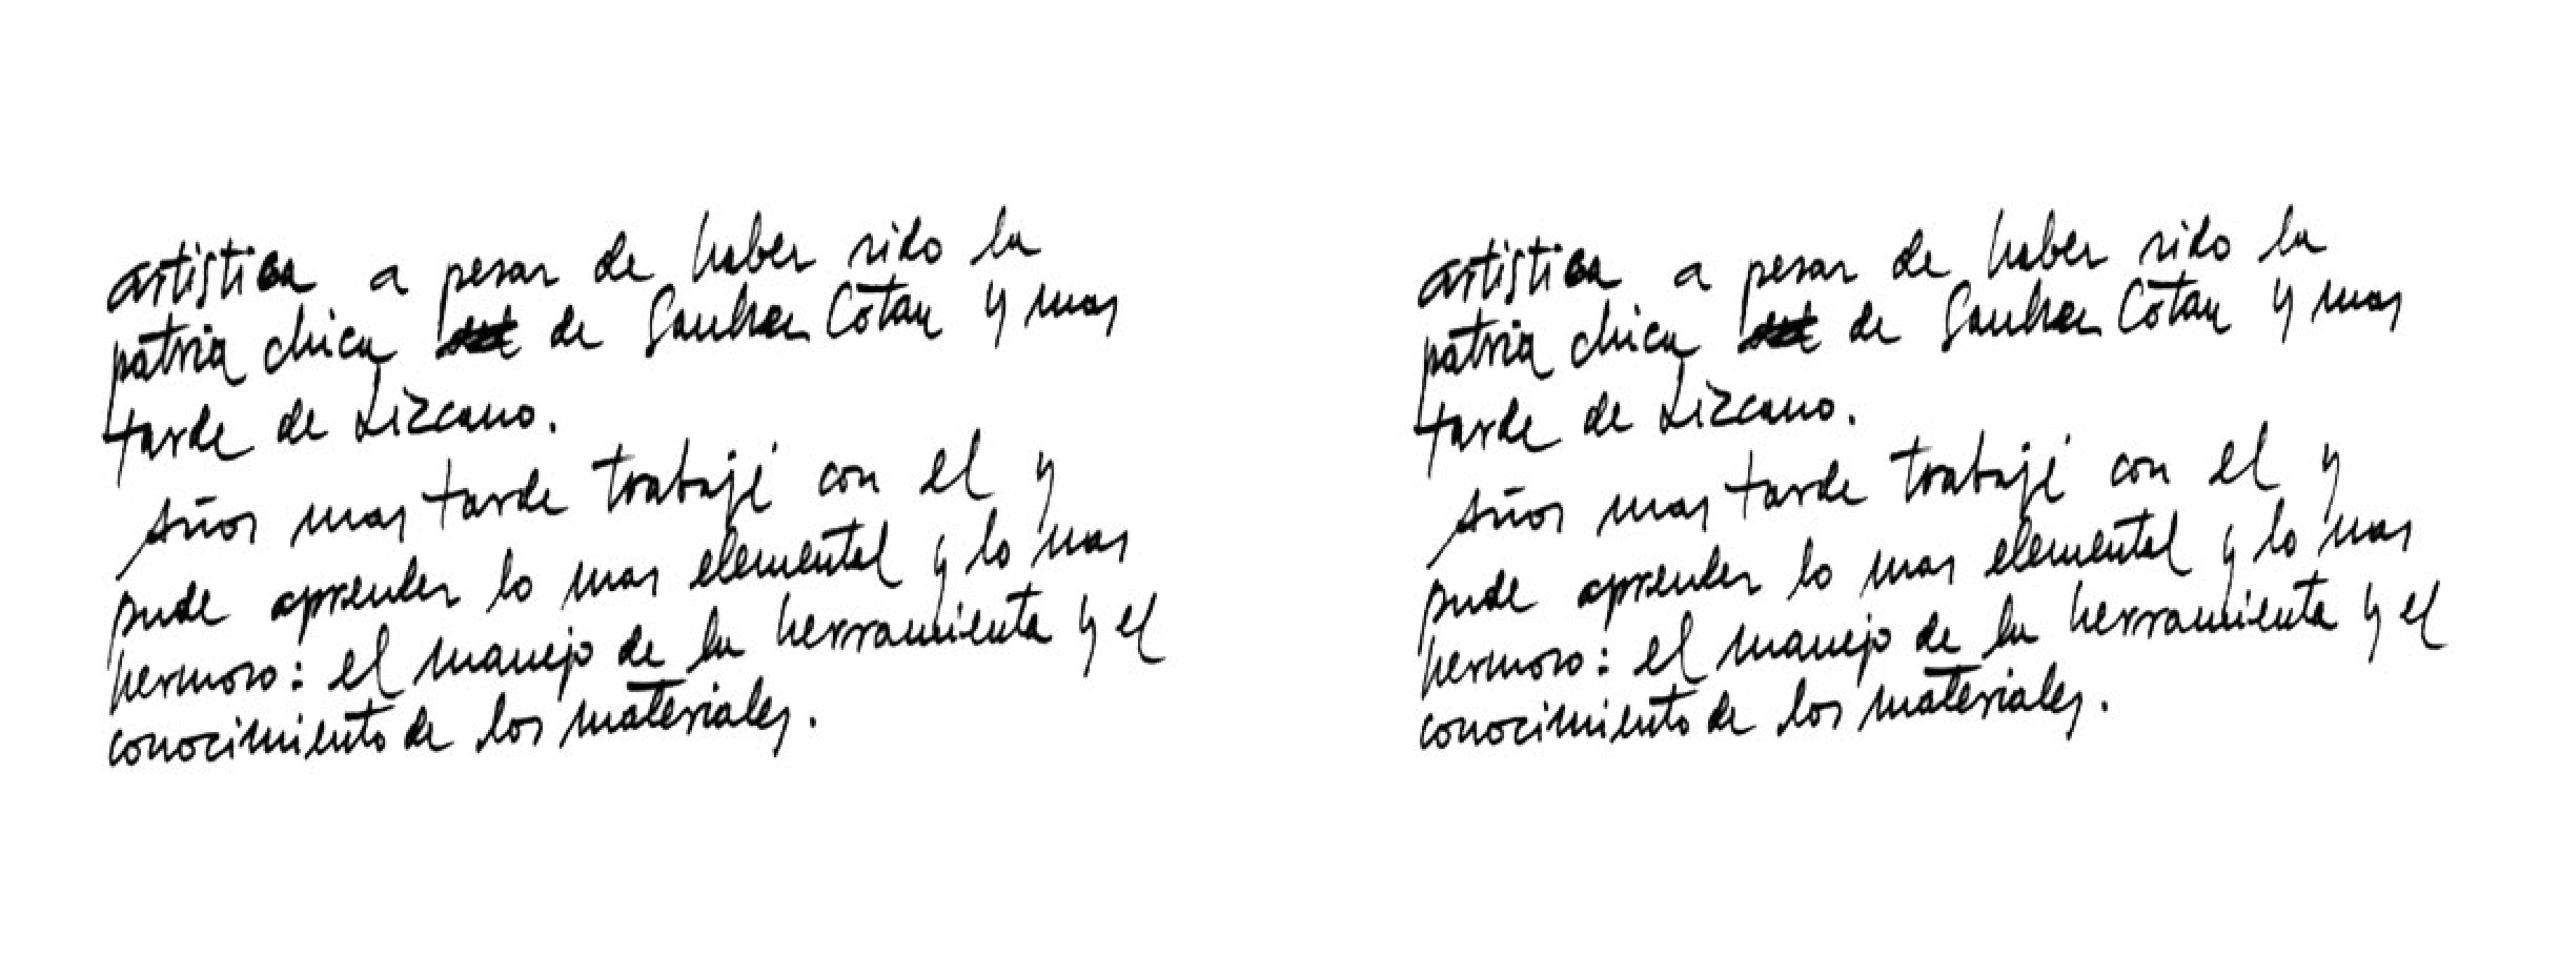 artistica a pesar de haber sido la
patria chica de Sanchez Cotan y mas
tarde de Lizcano.
Años mas tarde trabajé con el y
pude aprender lo mas elemental y lo mas
hermoso: el manejo de la herramienta y el
conocimiento de los materiales.
artistica a pesar de haber sido la
patria chica de Sanchez Cotan y mas
tarde de Lizcano.
Años mas tarde trabajé con el y
pude aprender lo mas elemental y lo mas
hermoso: el manejo de la herramienta y el
conocimiento de los materiales.